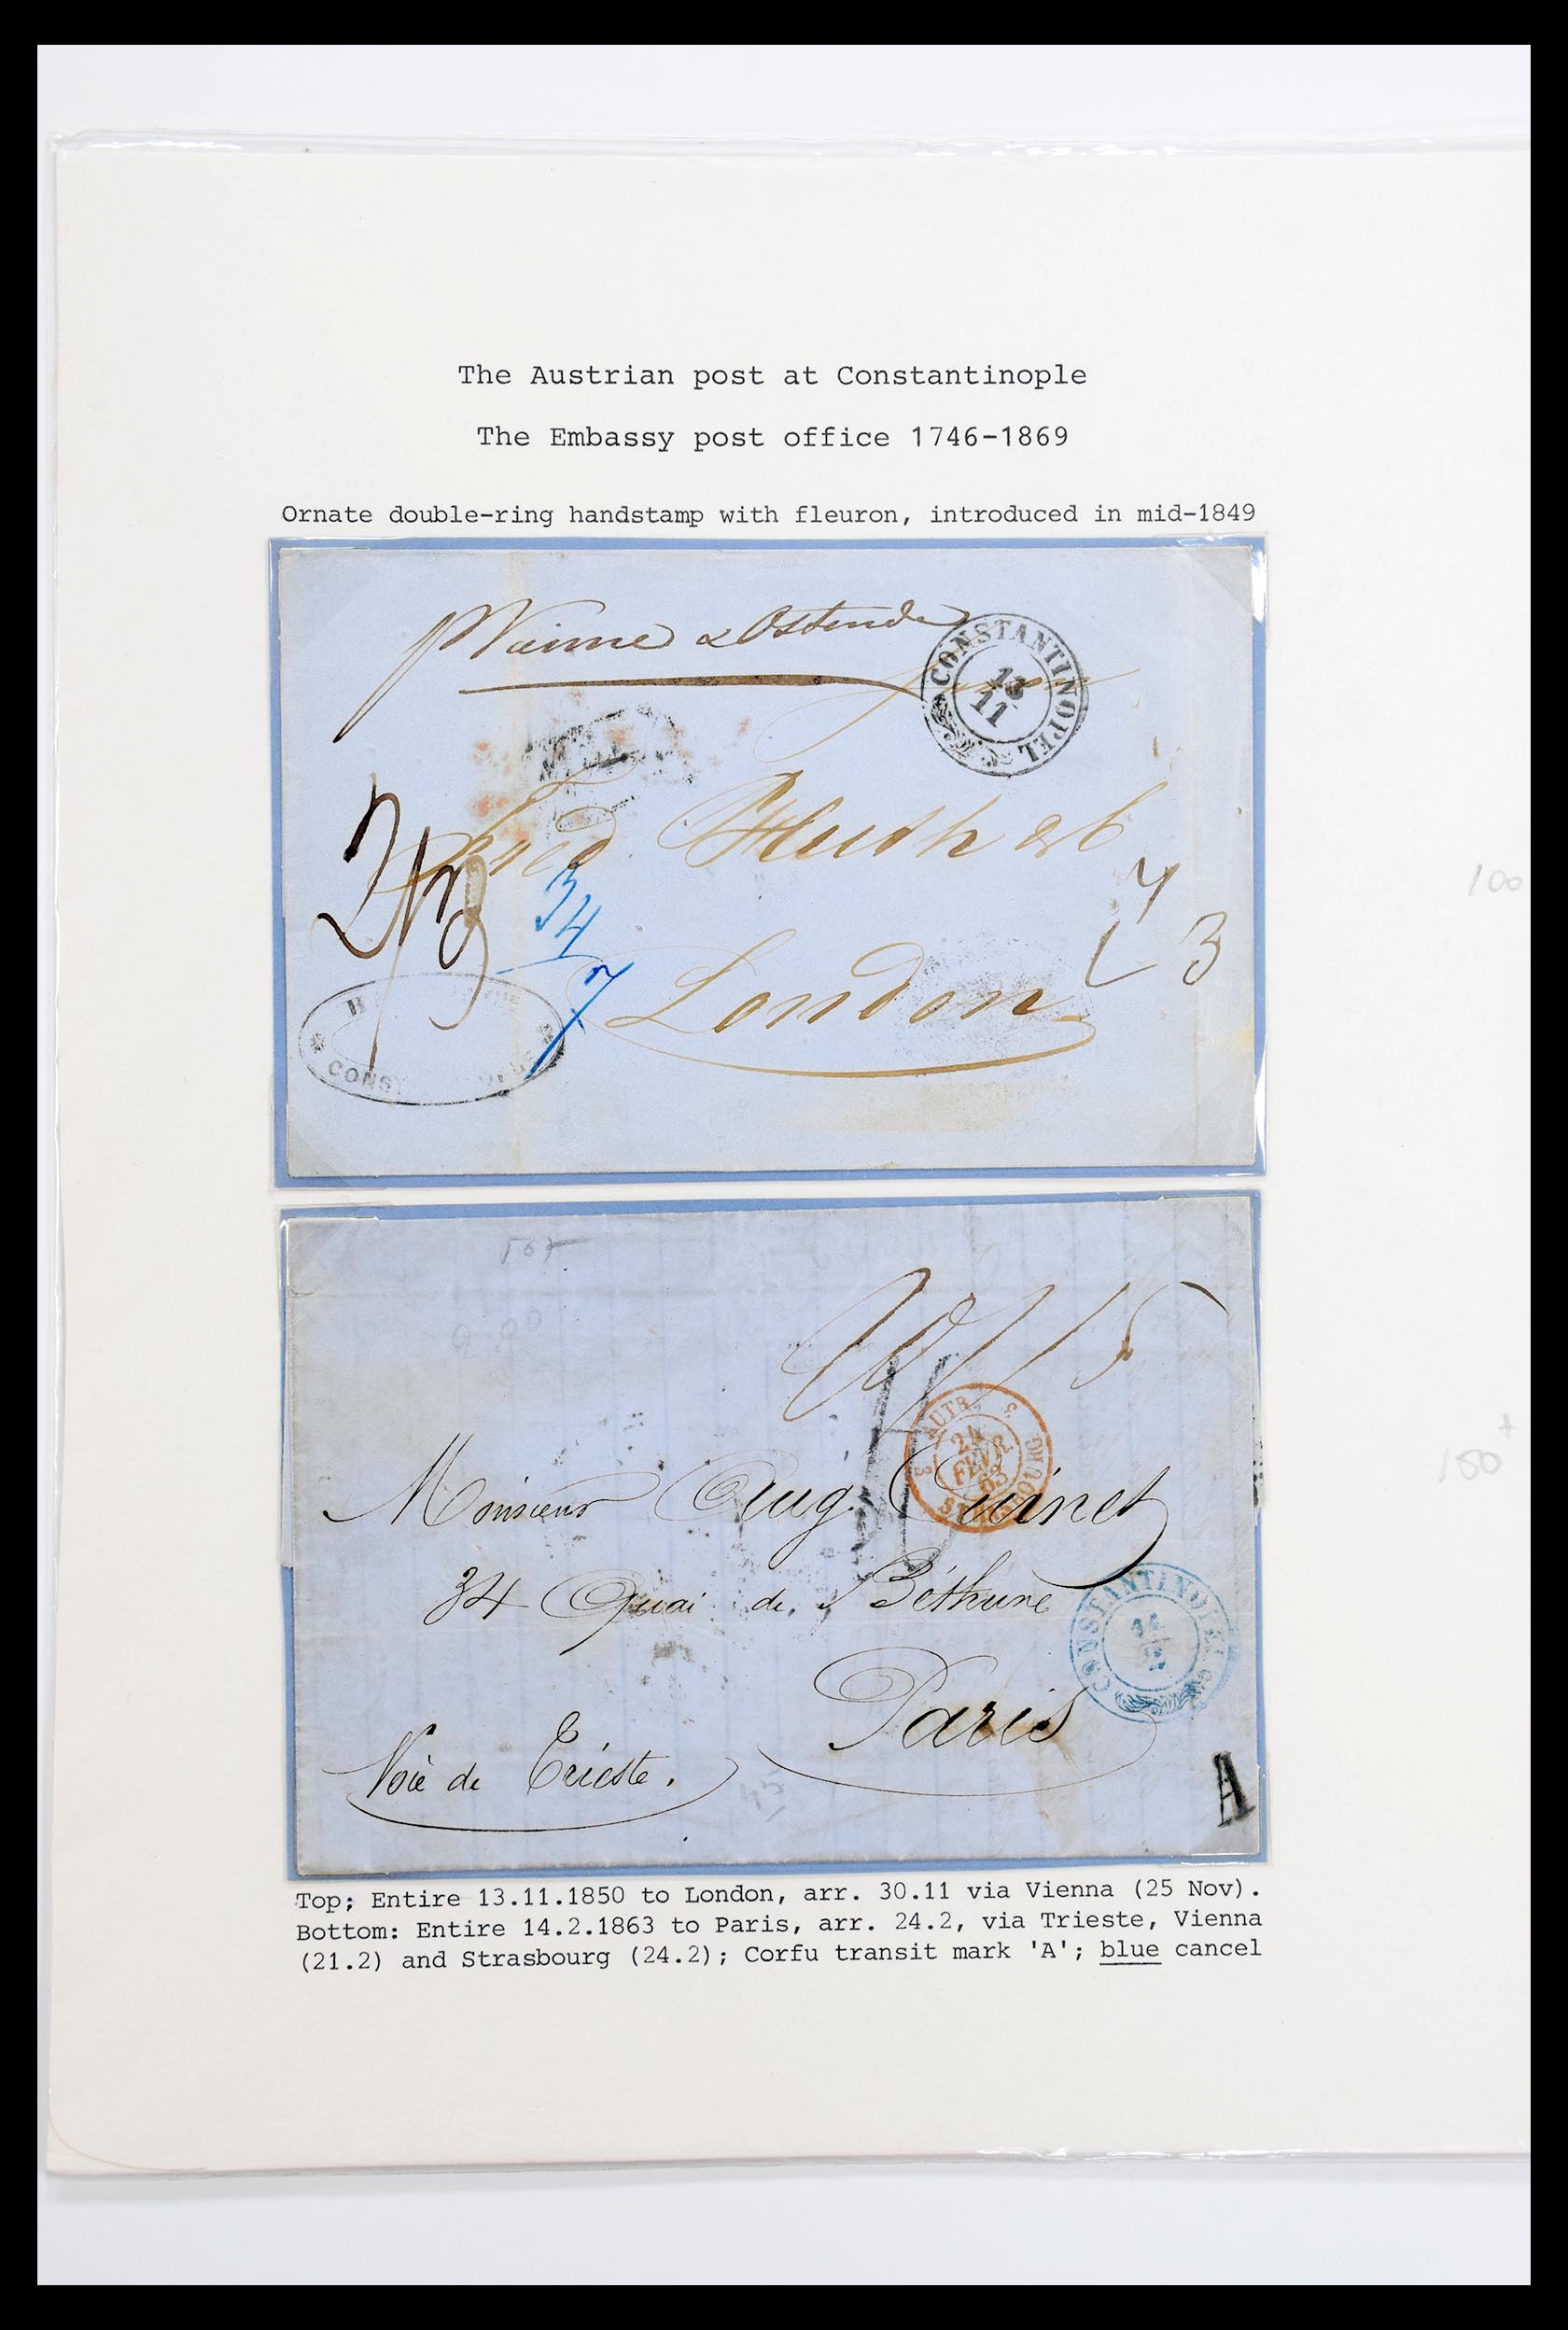 The Austrian post at Constantinople
The Embassy post office 1746-1869
Ornate double-ring handstamp with fleuron, introduced in mid-1849
Ostende
CONSTANTINOPEL
13
11
Fred Huth & C
3
4
7
3
London
CONST
100
15
AUTR.
24
FEVR
63
STRASBOURG
Monsieur Aug. Guinet
34 Quai de Béthune
Paris
CONSTANTINOPEL
14
Voie de Trieste.
A
150
Top; Entire 13.11.1850 to London, arr. 30.11 via Vienna (25 Nov).
Bottom: Entire 14.2.1863 to Paris, arr. 24.2, via Trieste, Vienna
(21.2) and Strasbourg (24.2); Corfu transit mark 'A'; blue cancel